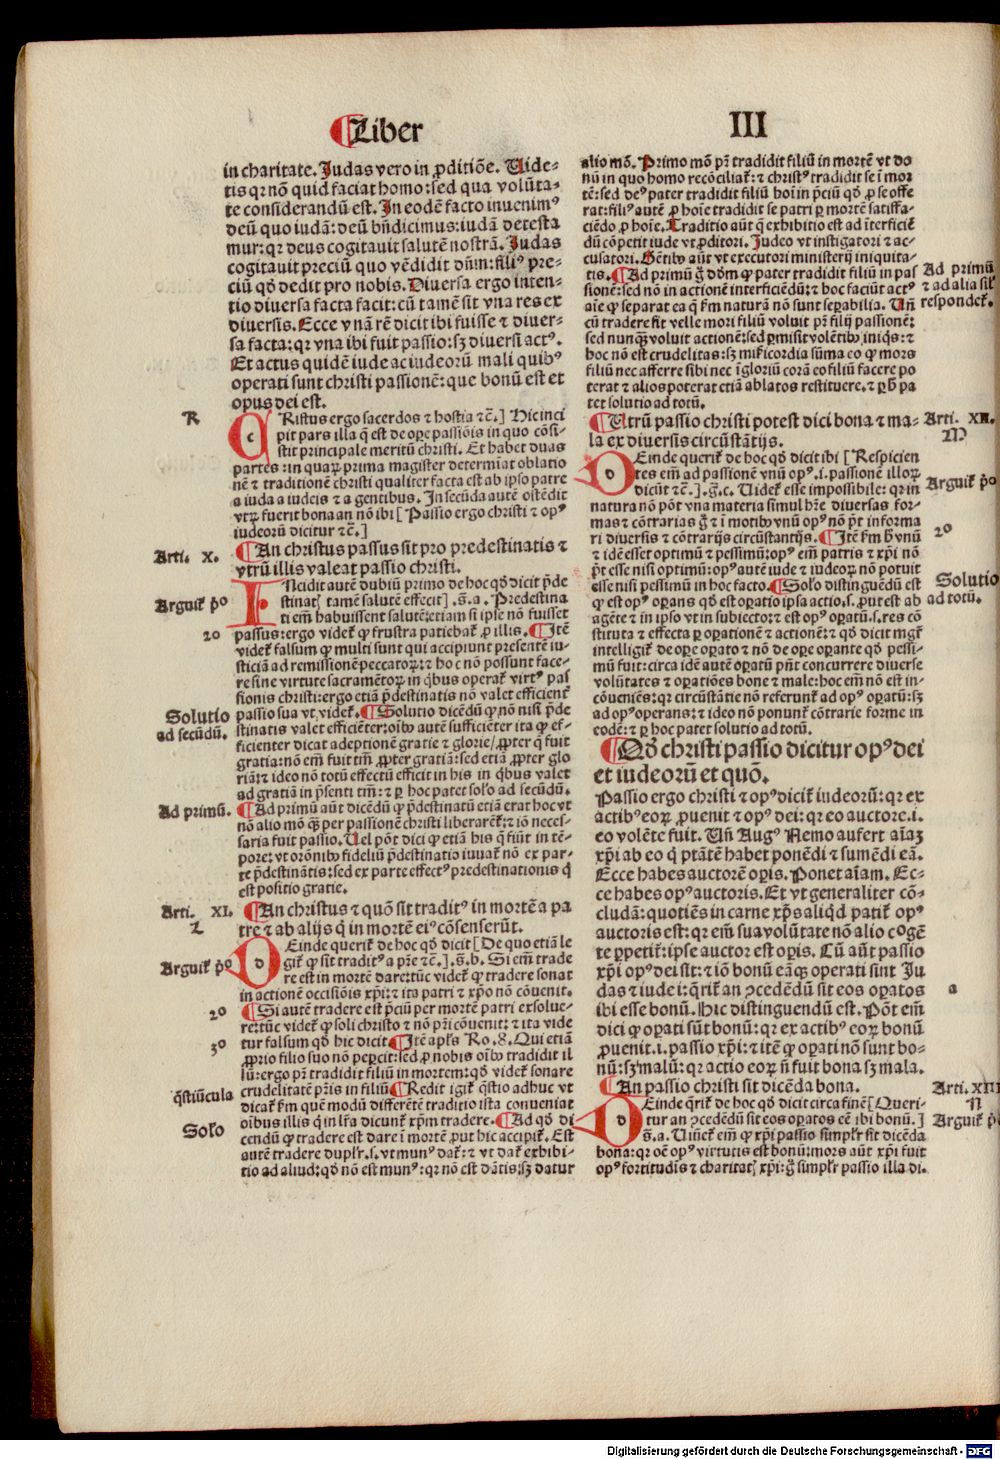 ¶Liber
III
in charitate. Judas vero in ꝓditiõe. Uide-
tis qꝛ nõ quid faciat homo: sed qua volũta-
te considerandũ est. In eodẽ facto inuenimꝰ
deũ quo iudã: deũ bñdicimus: iudã detesta
mur: qꝛ deus cogitauit salutẽ nostrã. Judas
cogitauit preciũ quo vẽdidit dñm: filiꝰ pre-
ciũ qđ dedit pro nobis. Diuersa ergo inten-
tio diuersa facta facit: cũ tamẽ sit vna res ex
diuersis. Ecce vnã rẽ dicit ibi fuisse ⁊ diuer-
sa facta: qꝛ vna ibi fuit passio: sꝫ diuersi actꝰ.
Et actus quidẽ iude ac iudeorũ mali quibꝰ
operati sunt christi passionẽ: que bonũ est et
opus dei est.
R
CRistus ergo sacerdos ⁊ hostia ⁊c̃.] Hic inci
pit pars illa q̃ est de oꝑe passiõis in quo cõsi-
stit principale meritũ christi. Et habet duas
partes: in quaꝝ prima magister determiat oblatio
nẽ ⁊ traditionẽ christi qualiter facta est ab ipso patre
a iuda a iudeis ⁊ a gentibus. In secũda autẽ ostẽdit
vtꝝ fuerit bona an nõ ibi [Passio ergo christi ⁊ opꝰ
iudeorũ dicitur ⁊c̃.]
Arti. X.
¶An christus passus sit pro predestinatis ⁊
vtrũ illis valeat passio christi.
INcidit autẽ dubiũ primo de hoc qđ dicit p̃de
Arguit̃ pº
stinatꝭ tamẽ salutẽ effecit]. §.a. Predestina
ti em̃ habuissent salutẽ: etiam si ipse nõ fuisset
2º
passus: ergo videt̃ ꝙ frustra patiebat̃ ꝓ illis. ¶Itẽ
videt̃ falsum ꝙ multi sunt qui accipiunt presentẽ iu-
sticiã ad remissionẽ peccatoꝝ: ⁊ hoc nõ possunt face-
re sine virtute sacramẽtoꝝ in q̇bus operat̃ virtꝰ pas
sionis christi: ergo etiã p̃destinatis nõ valet efficiẽt̃
Solutio
ad secũdũ.
passio sua vt videt̃. ¶Solutio dicẽdũ ꝙ nõ nisi p̃de
stinatis valet efficiẽter: oĩbꝰ autẽ sufficiẽter ita ꝙ ef-
ficienter dicat adeptionẽ gratie ⁊ glorie/ ꝓpter q̃ fuit
gratia: nõ em̃ fuit tm̃ ꝓpter gratiã: sed etiã ꝓpter glo
riã: ⁊ ideo nõ totũ effectũ efficit in his in q̇bus valet
ad gratiã in p̃senti tm̃: ⁊ ꝑ hoc patet solº ad secũdũ.
Ad primũ.
¶Ad primũ aũt dicẽdũ ꝙ p̃destinatũ etiã erat hoc vt
nõ alio mõ q̃ꝫ per passionẽ christi liberarẽt̃: ⁊ iõ neces-
saria fuit passio. Uel põt dici ꝙ etiã his q̇ fiũt in tẽ-
pore: vt orõnibꝰ fideliũ p̃destinatio iuuat̃ nõ ex par-
te p̃destinãtis: sed ex parte effectꝰ predestinationis q̇
est positio gratie.
Arti. XI.
L
¶An christus ⁊ quõ sit traditꝰ in mortẽ a pa
tre ⁊ ab alijs q̇ in mortẽ eiꝰ cõsenserũt.
DEinde querit̃ de hoc qđ dicit [De quo etiã le
Arguit̃ pº
git̃ ꝙ sit traditꝰ a pr̃e ⁊c̃.]. §.b. Si em̃ trade
re est in mortẽ dare: tũc videt̃ ꝙ tradere sonat
in actionẽ occisiõis xp̃i: ⁊ ita patri ⁊ xp̃o nõ cõuenit.
2º
¶Si autẽ tradere est p̃ciũ per mortẽ patri exsolue-
re: tũc videt̃ ꝙ soli christo ⁊ nõ pr̃i cõuenit: ⁊ ita vide
3º
tur falsum qđ hic dicit. ¶Itẽ apl̃s Ro.8. Qui etiã
ꝓprio filio suo nõ pepcit: sed ꝓ nobis oĩbꝰ tradidit il
lũ: ergo pr̃ tradidit filiũ in mortem: qđ videt̃ sonare
q̃stiũcula
crudelitatẽ pr̃is in filiũ. ¶Redit igit̃ q̃stio adhuc vt
dicat̃ ẜm quem modũ differẽtẽ traditio ista conueniat
oĩbus illis q̇ in lr̃a dicunt̃ xp̃m tradere. ¶Ad qđ di
Solº
cendũ ꝙ tradere est dare ĩ mortẽ ꝓut hic accipit̃. Est
autẽ tradere duplr̃.s. vt munꝰ dat̃: ⁊ vt dat̃ exhibi-
tio ad aliud: qđ nõ est munꝰ: qꝛ nõ est dãtis: sꝫ datur
alio mõ. Primo mõ pr̃ tradidit filiũ in mortẽ vt do
nũ in quo homo recõciliat̃: ⁊ christꝰ tradidit se ĩ mor
tẽ: sed deꝰ pater tradidit filiũ hoĩ in p̃ciũ qđ ꝓ se offe
rat: filiꝰ autẽ ꝓ hoĩe tradidit se patri ꝑ mortẽ satiffa-
ciẽdo ꝓ hoĩe. Traditio aũt q̃ exhibitio est ad ĩterficiẽ
dũ cõpetit iude vt ꝓditori. Judeo vt instigatori ⁊ ac-
cusatori. Gẽtibꝰ aũt vt executori ministerij iniquita-
Ad primũ
⁊ ad alia sil̃
respondet̃.
tis. ¶Ad primũ g̃ dõm ꝙ pater tradidit filiũ in pas
sionẽ: sed nõ in actionẽ interficiẽdũ: ⁊ hoc faciũt actꝰ
aĩe ꝙ separat ea q̃ ẜm naturã nõ sunt seꝑabilia. Uñ
cũ tradere sit velle mori filiũ voluit pr̃ filij passionẽ:
sed nunq̃ꝫ voluit actionẽ: sed ꝑmisit volẽtibꝰ iniq̇s: ⁊
hoc nõ est crudelitas: sꝫ mĩcordia sũma eo ꝙ mors
filiũ nec afferre sibi nec ĩgloriũ corã eo filiũ facere po
terat ⁊ alios poterat etiã ablatos restituere. ⁊ ꝑ ħ pa
tet solutio ad totũ.
Arti. XII.
M
¶Utrũ passio christi potest dici bona ⁊ ma-
la ex diuersis circũstãtijs.
DEinde querit̃ de hoc qđ dicit ibi [Respicien
Arguit̃ pº
tes em̃ ad passionẽ vnũ opꝰ.i. passionẽ illoꝝ
dicũt ⁊c̃.].§.c. Uidet̃ esse impossibile: qꝛ in
natura nõ põt vna materia simul hr̃e diuersas for-
mas ⁊ cõtrarias g̃ ⁊ ĩ motibꝰ vnũ opꝰ nõ p̃t informa
2º
ri diuersis ⁊ cõtrarijs circũstantijs. ¶Itẽ ẜm ħ vnũ
⁊ idẽ esset optimũ ⁊ pessimũ: opꝰ em̃ patris ⁊ xp̃i nõ
p̃t esse nisi optimũ: opꝰ autẽ iude ⁊ iudeoꝝ nõ potuit
Solutio
ad totũ.
esse nisi pessimũ in hoc facto. ¶Solº distinguẽdũ est
ꝙ est opꝰ oꝑans qđ est oꝑatio ipsa actio.s. ꝓut est ab
agẽte ⁊ in ipso vt in subiecto: ⁊ est opꝰ oꝑatũ.s. res cõ
stituta ⁊ effecta ꝑ oꝑationẽ ⁊ actionẽ: ⁊ qđ dicit mgr̃
intelligit̃ de oꝑe oꝑato ⁊ nõ de oꝑe oꝑante qđ pessi-
mũ fuit: circa idẽ autẽ oꝑatũ pñt concurrere diuerse
volũtates ⁊ oꝑatiões bone ⁊ male: hoc em̃ nõ est in-
cõueniẽs: qꝛ circũstãtie nõ referunt̃ ad opꝰ oꝑatũ: sꝫ
ad opꝰ operans: ⁊ ideo nõ ponunt̃ cõtrarie forme in
eodẽ: ⁊ ꝑ hoc patet solutio ad totũ.
¶Qđ christi passio dicitur opꝰ dei
et iudeorũ et quõ.
Passio ergo christi ⁊ opꝰ dicit̃ iudeorũ: qꝛ ex
actibꝰ eoꝝ ꝓuenit ⁊ opꝰ dei: qꝛ eo auctore.i.
eo volẽte fuit. Uñ Augꝰ Nemo aufert aĩaꝫ
xp̃i ab eo q̇ ptãtẽ habet ponẽdi ⁊ sumẽdi eã.
Ecce habes auctorẽ oꝑis. Ponet aĩam. Ec-
ce habes opꝰ auctoris. Et vt generaliter cõ-
cludã: quotiẽs in carne xp̃s aliq̇d patit̃ opꝰ
auctoris est: qꝛ em̃ sua volũtate nõ alio cogẽ
te ꝑpetit̃: ipse auctor est oꝑis. Cũ aũt passio
xp̃i opꝰ dei sit: ⁊ iõ bonũ eãqꝫ operati sint Ju
a
das ⁊ iudei: q̃rit̃ an ꝯcedẽdũ sit eos oꝑatos
ibi esse bonũ. Hic distinguendũ est. Põt em̃
dici ꝙ oꝑati sũt bonũ: qꝛ ex actibꝰ eoꝝ bonũ
ꝓuenit.i. passio xp̃i: ⁊ itẽ ꝙ oꝑati nõ sunt bo-
nũ: sꝫ malũ: qꝛ actio eoꝝ ñ fuit bona sꝫ mala.
Arti. XIII
N
¶An passio christi sit dicẽda bona.
DEinde q̃rit̃ de hoc qđ dicit circa finẽ [Queri-
Arguit̃ pº
tur an ꝯcedẽdũ sit eos oꝑatos eẽ ibi bonũ.]
§.a. Uincẽt em̃ ꝙ xp̃i passio simplr̃ sit dicẽda
bona: qꝛ oẽ opꝰ virtutis est bonũ: mors aũt xp̃i fuit
opꝰ fortitudĩs ⁊ charitatꝭ xp̃i: g̃ simplr̃ passio illa di.
Digitalisierung gefördert durch die Deutsche Forschungsgemeinschaft - DFG